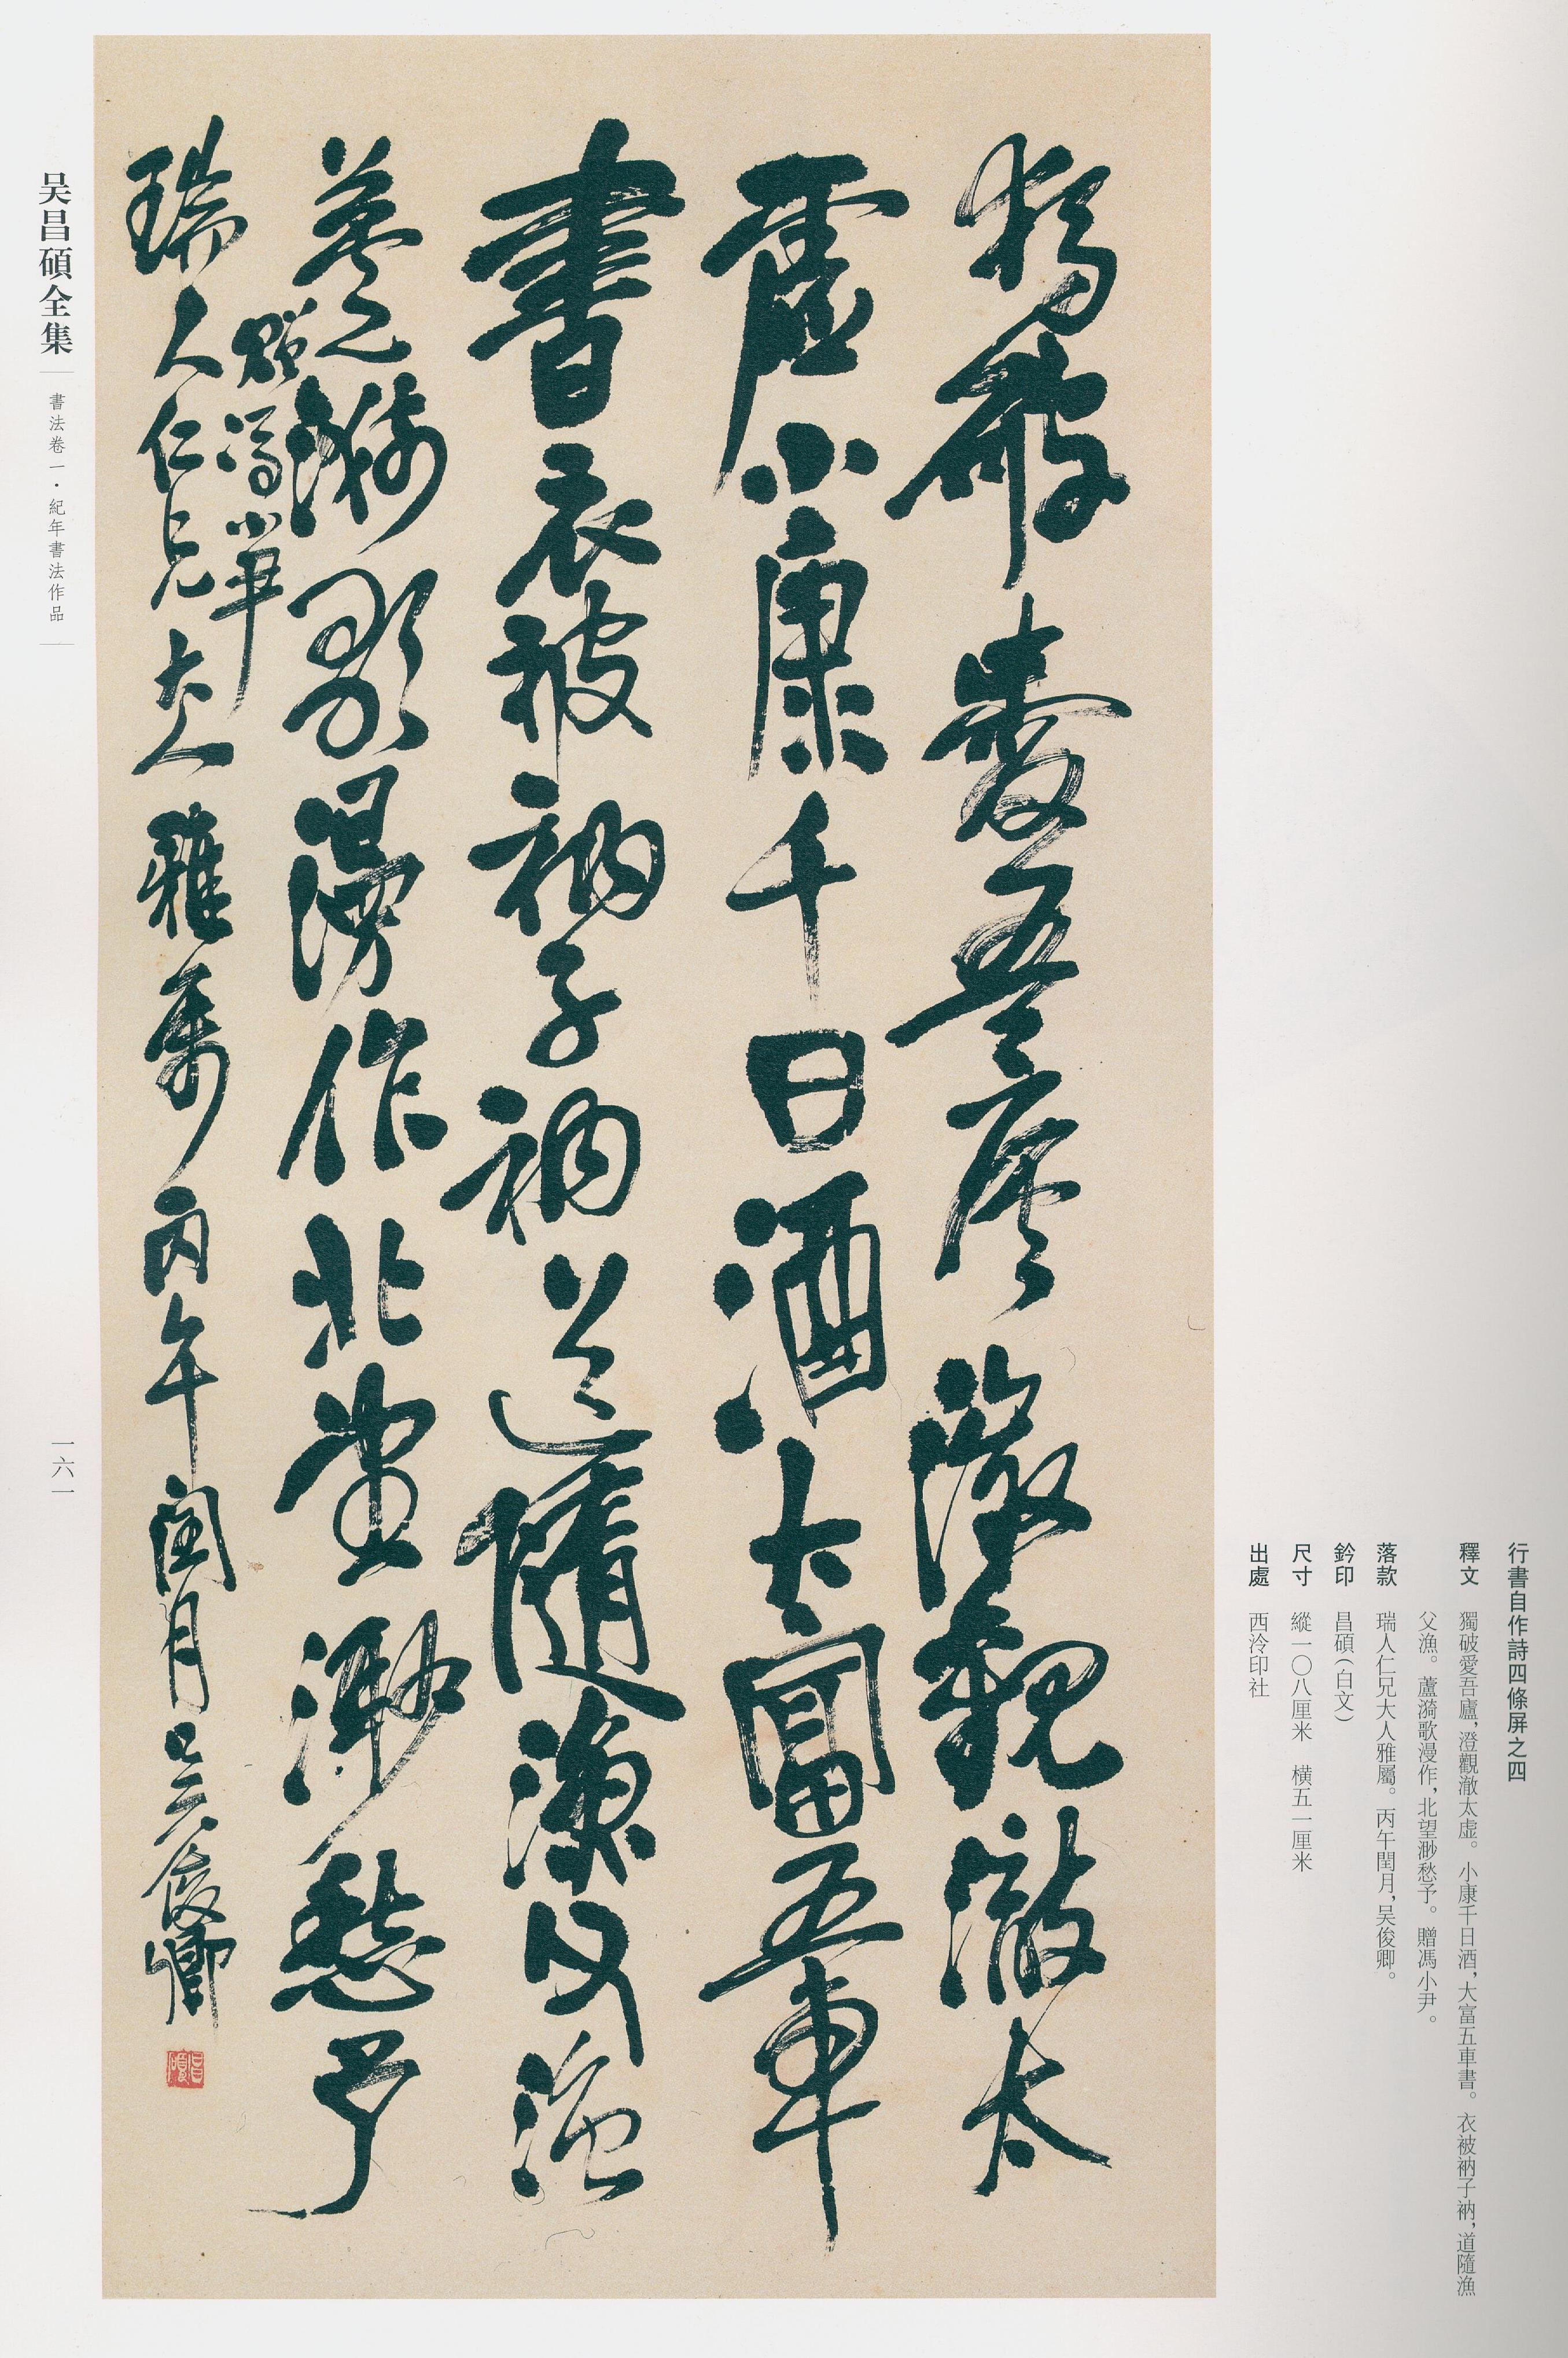 行書自作詩四條屏之四
釋文 獨破愛吾廬，澄觀澈太虛。小康千日酒，大富五車書。衣被衲子衲，道隨漁
父漁。蘆漪歌漫作，北望渺愁予。贈馮小尹。
落款 瑞人仁兄大人雅屬。丙午閏月，吴俊卿。
鈐印 昌碩（白文）
尺寸 縱一〇八厘米 横五一厘米
出處 西泠印社
獨破愛吾廬澂觀澈太
虛小康千日酒大富五車
書衣被衲子衲道隨漁父漁
蘆之漪歌漫作北望渺愁予
贈馮小尹
瑞人仁兄大人雅屬丙午閏月吴俊卿
昌碩
吴昌碩全集
書法卷一·紀年書法作品
一六一